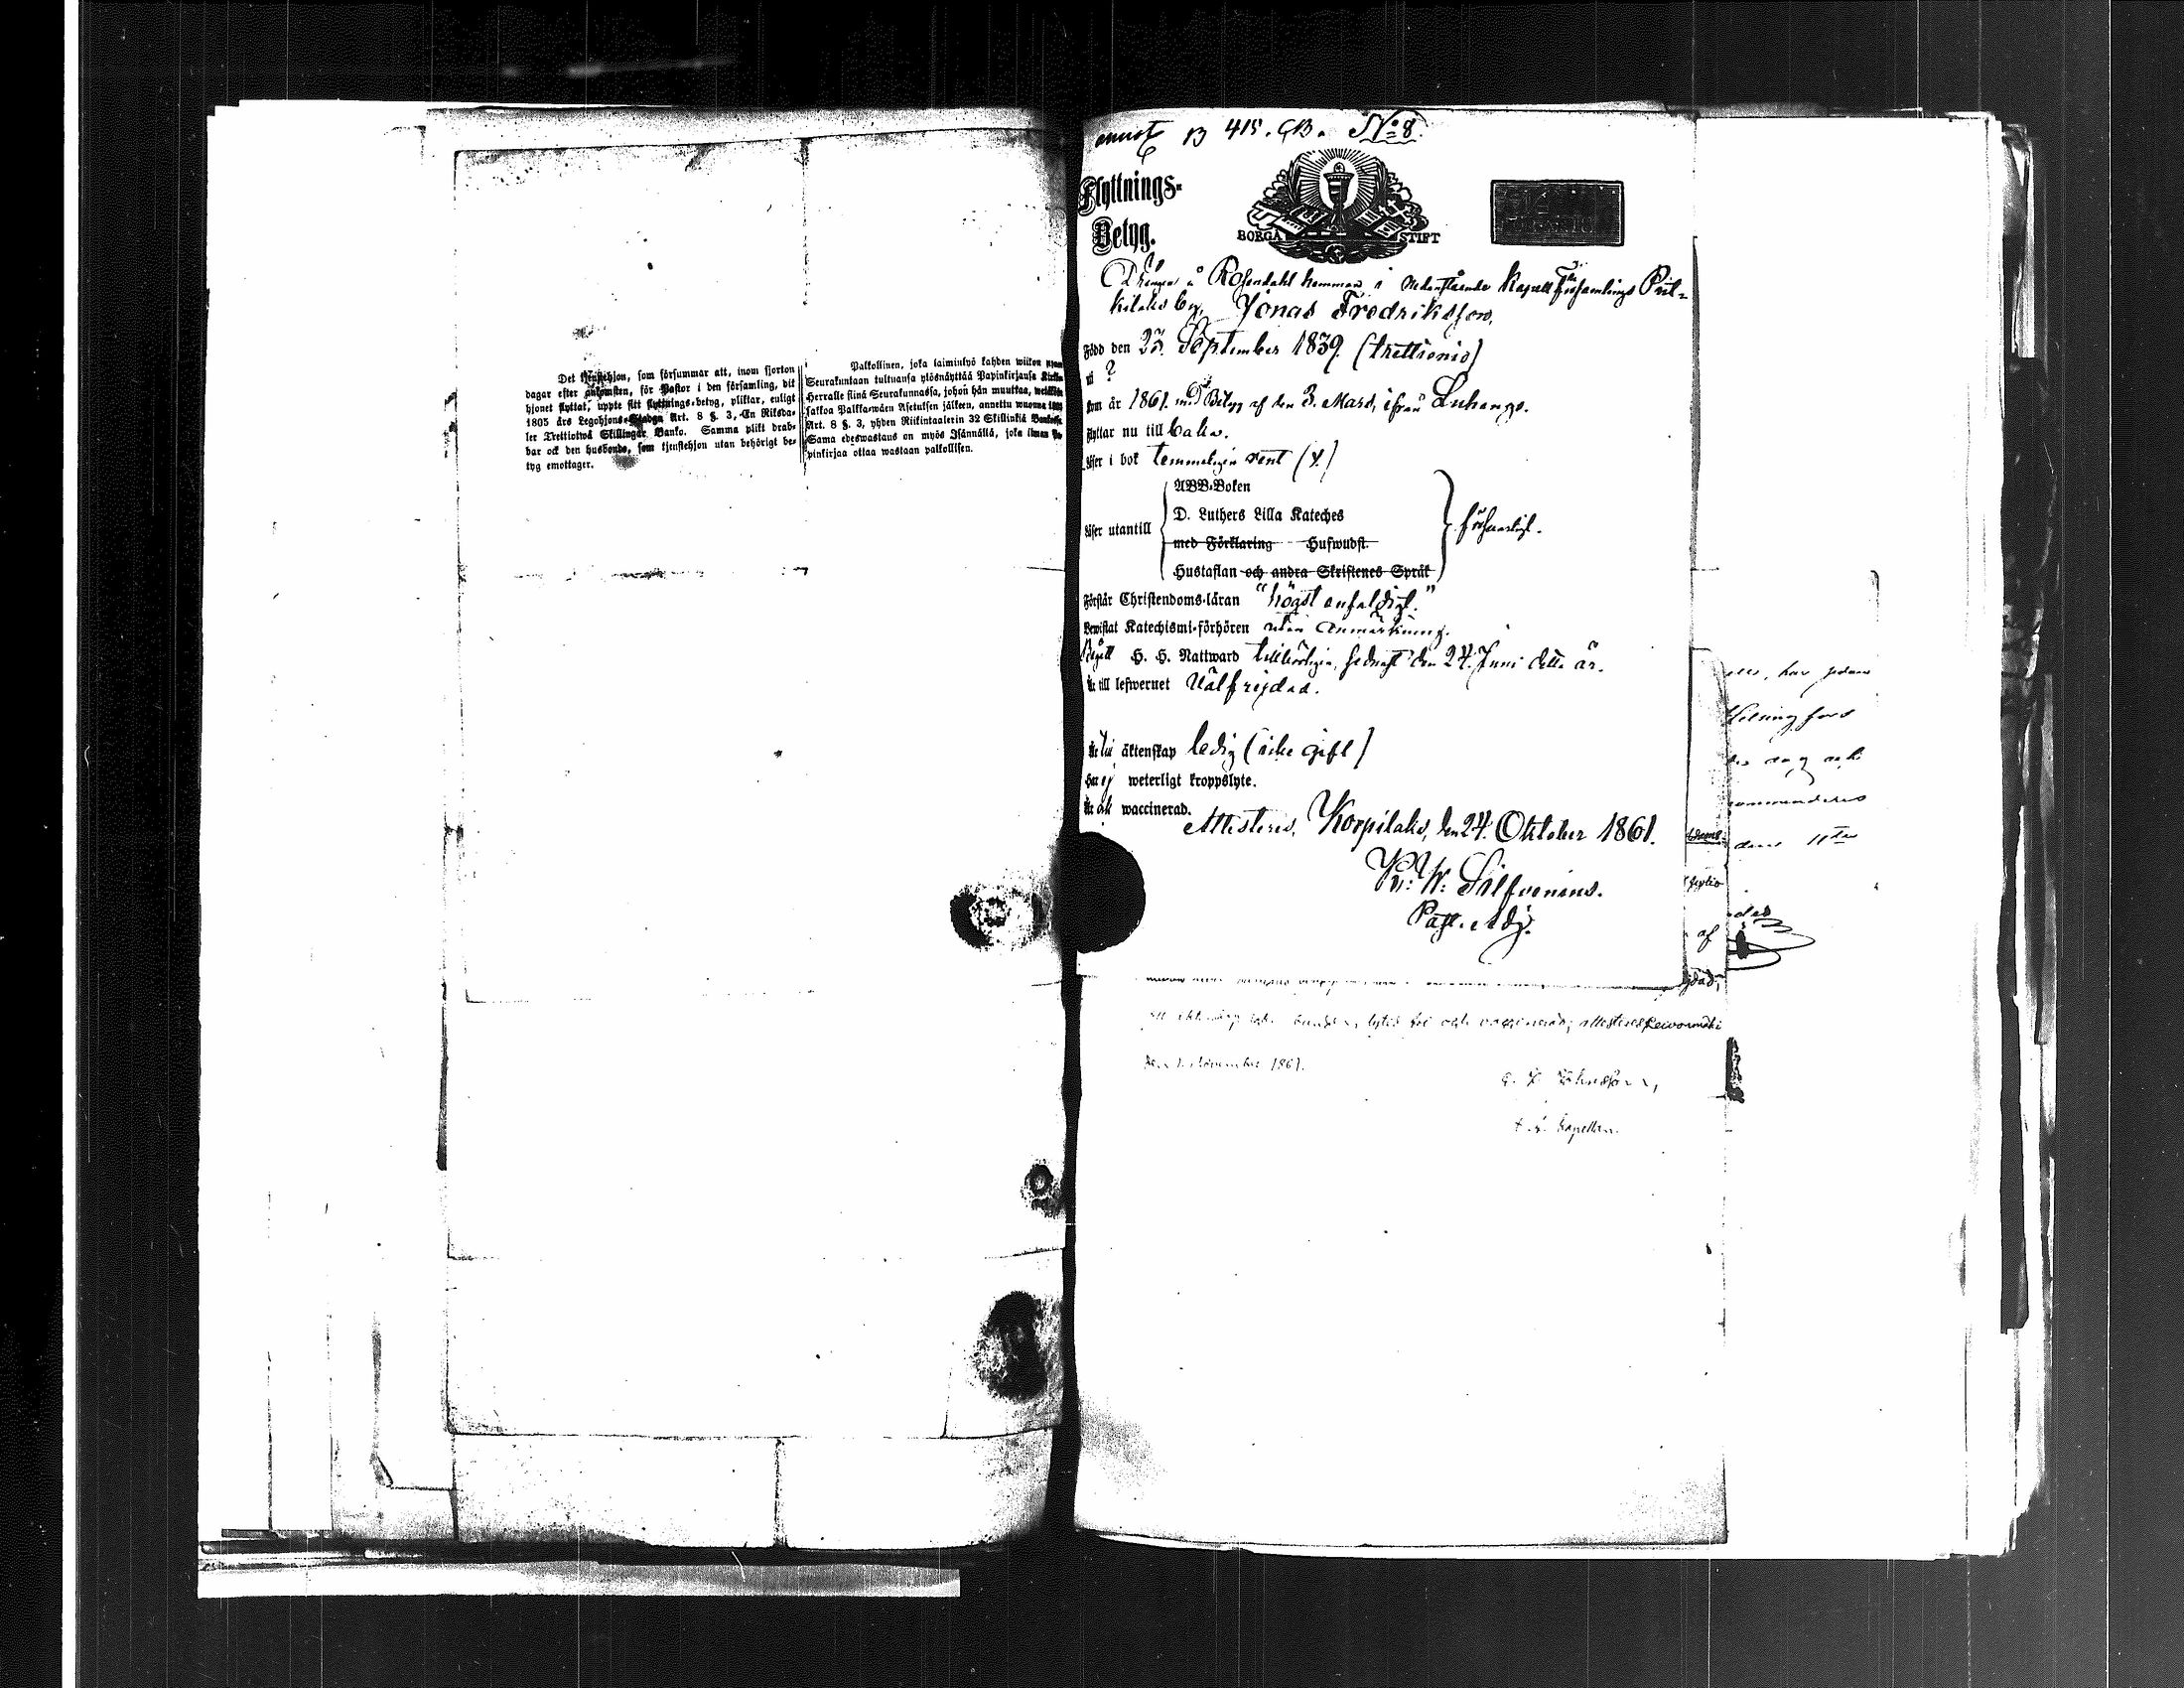 Det tjenstehjon, som försummar att, inom fjorton
dagar efter ankomsten, för Pastor i den församling, dit
hjonet flyttat, uppte sitt flyttnings-betyg, pliktar, enligt
1805 års Legohjons-Stadga Art. 8 §. 3, En Riksda-
ler Trettiotwå Skillingar Banko. Samma plikt drab-
bar ock den husbonde, som tjenstehjon utan behörigt be-
tyg emottager.
Palkollinen, joka laiminlyö kahden wiikon
Seurakuntaan tultuansa ylösnäyttää Papinkirjansa
Herralle siinä Seurakunnassa, johon hän muuttaa,
sakkoa Palkka-wäen Asetuksen jälkeen, annettu wuonna
Art. 8 §. 3, yhden Riikintaalerin 32 Skillinkiä
Sama edeswastaus on myös Isännällä, joka ilman Pa-
pinkirjaa ottaa wastaan palkollisen.
B 415. No 8.
Flyttnings-
Betyg.
BORGÅ STIFT
Drängen å Rosendahl hemman i nedanstående Kapell Församlings Put-
kilaks by, Jonas Fredriksson,
Född den 23 September 1839. (trettionio)
i ?
kom år 1861. med Betyg af den 3. Mars, ifrån Luhango.
flyttar nu till baka.
läser i bok temmeligen rent (x)
läser utantill
ABB-Boken
D. Luthers Lilla Kateches
med Förklaring Hufwudst.
Hustaflan och andra Skriftenes Språk
försvarligt.
Förstår Christendoms-läran "högst enfaldigt."
Bewistat Katechismi-förhören utan anmärkning.
Begått H. H. Nattward tillbörligen, sednast den 24. Juni detta år.
Är till lefwernet välfrejdad.
Är till äktenskap ledig (icke gift)
Har ej weterligt kroppslyte.
Är ock waccinerad.
Attesteras, Korpilaks, den 24. Oktober 1861.
K: W: Silfvenius.
Past. Adj.
har sedan
Helsingfors
dag
den 11te
af
och vaccinerad; attesteras
den 1 November 1861.
Kapellan.